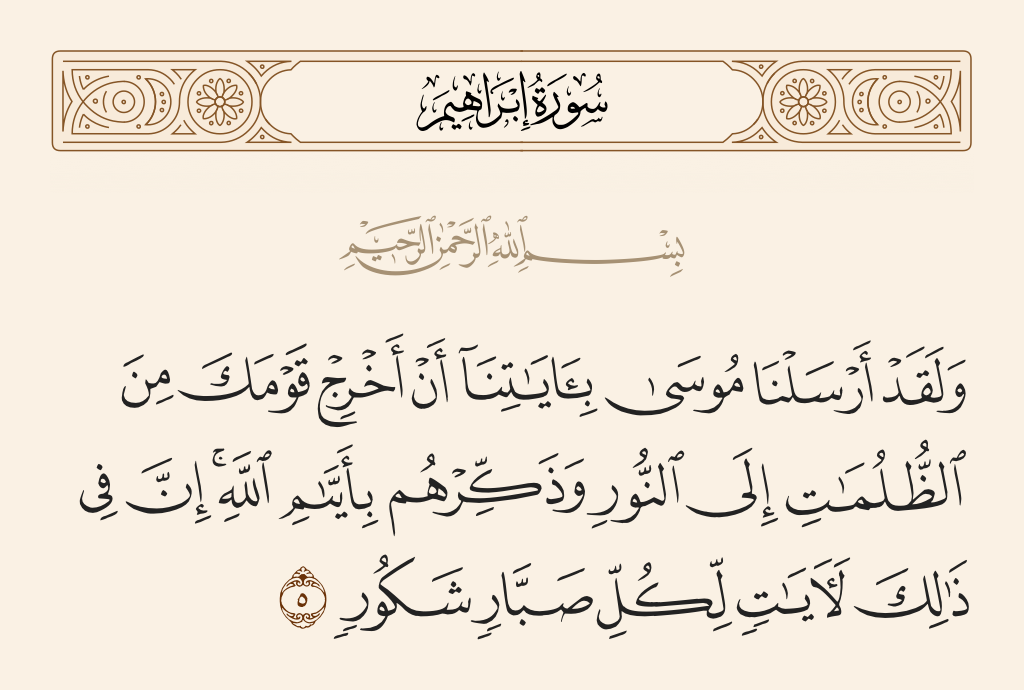 سُورَةُ إِبْرَاهِيمَ
بِسْمِ ٱللَّهِ ٱلرَّحْمَٰنِ ٱلرَّحِيمِ
وَلَقَدْ أَرْسَلْنَا مُوسَىٰ بِـَٔايَـٰتِنَآ أَنْ أَخْرِجْ قَوْمَكَ مِنَ
ٱلظُّلُمَـٰتِ إِلَى ٱلنُّورِ وَذَكِّرْهُم بِأَيَّىٰمِ ٱللَّهِ ۚ إِنَّ فِى
ذَٰلِكَ لَـَٔايَـٰتٍ لِّكُلِّ صَبَّارٍ شَكُورٍ ٥